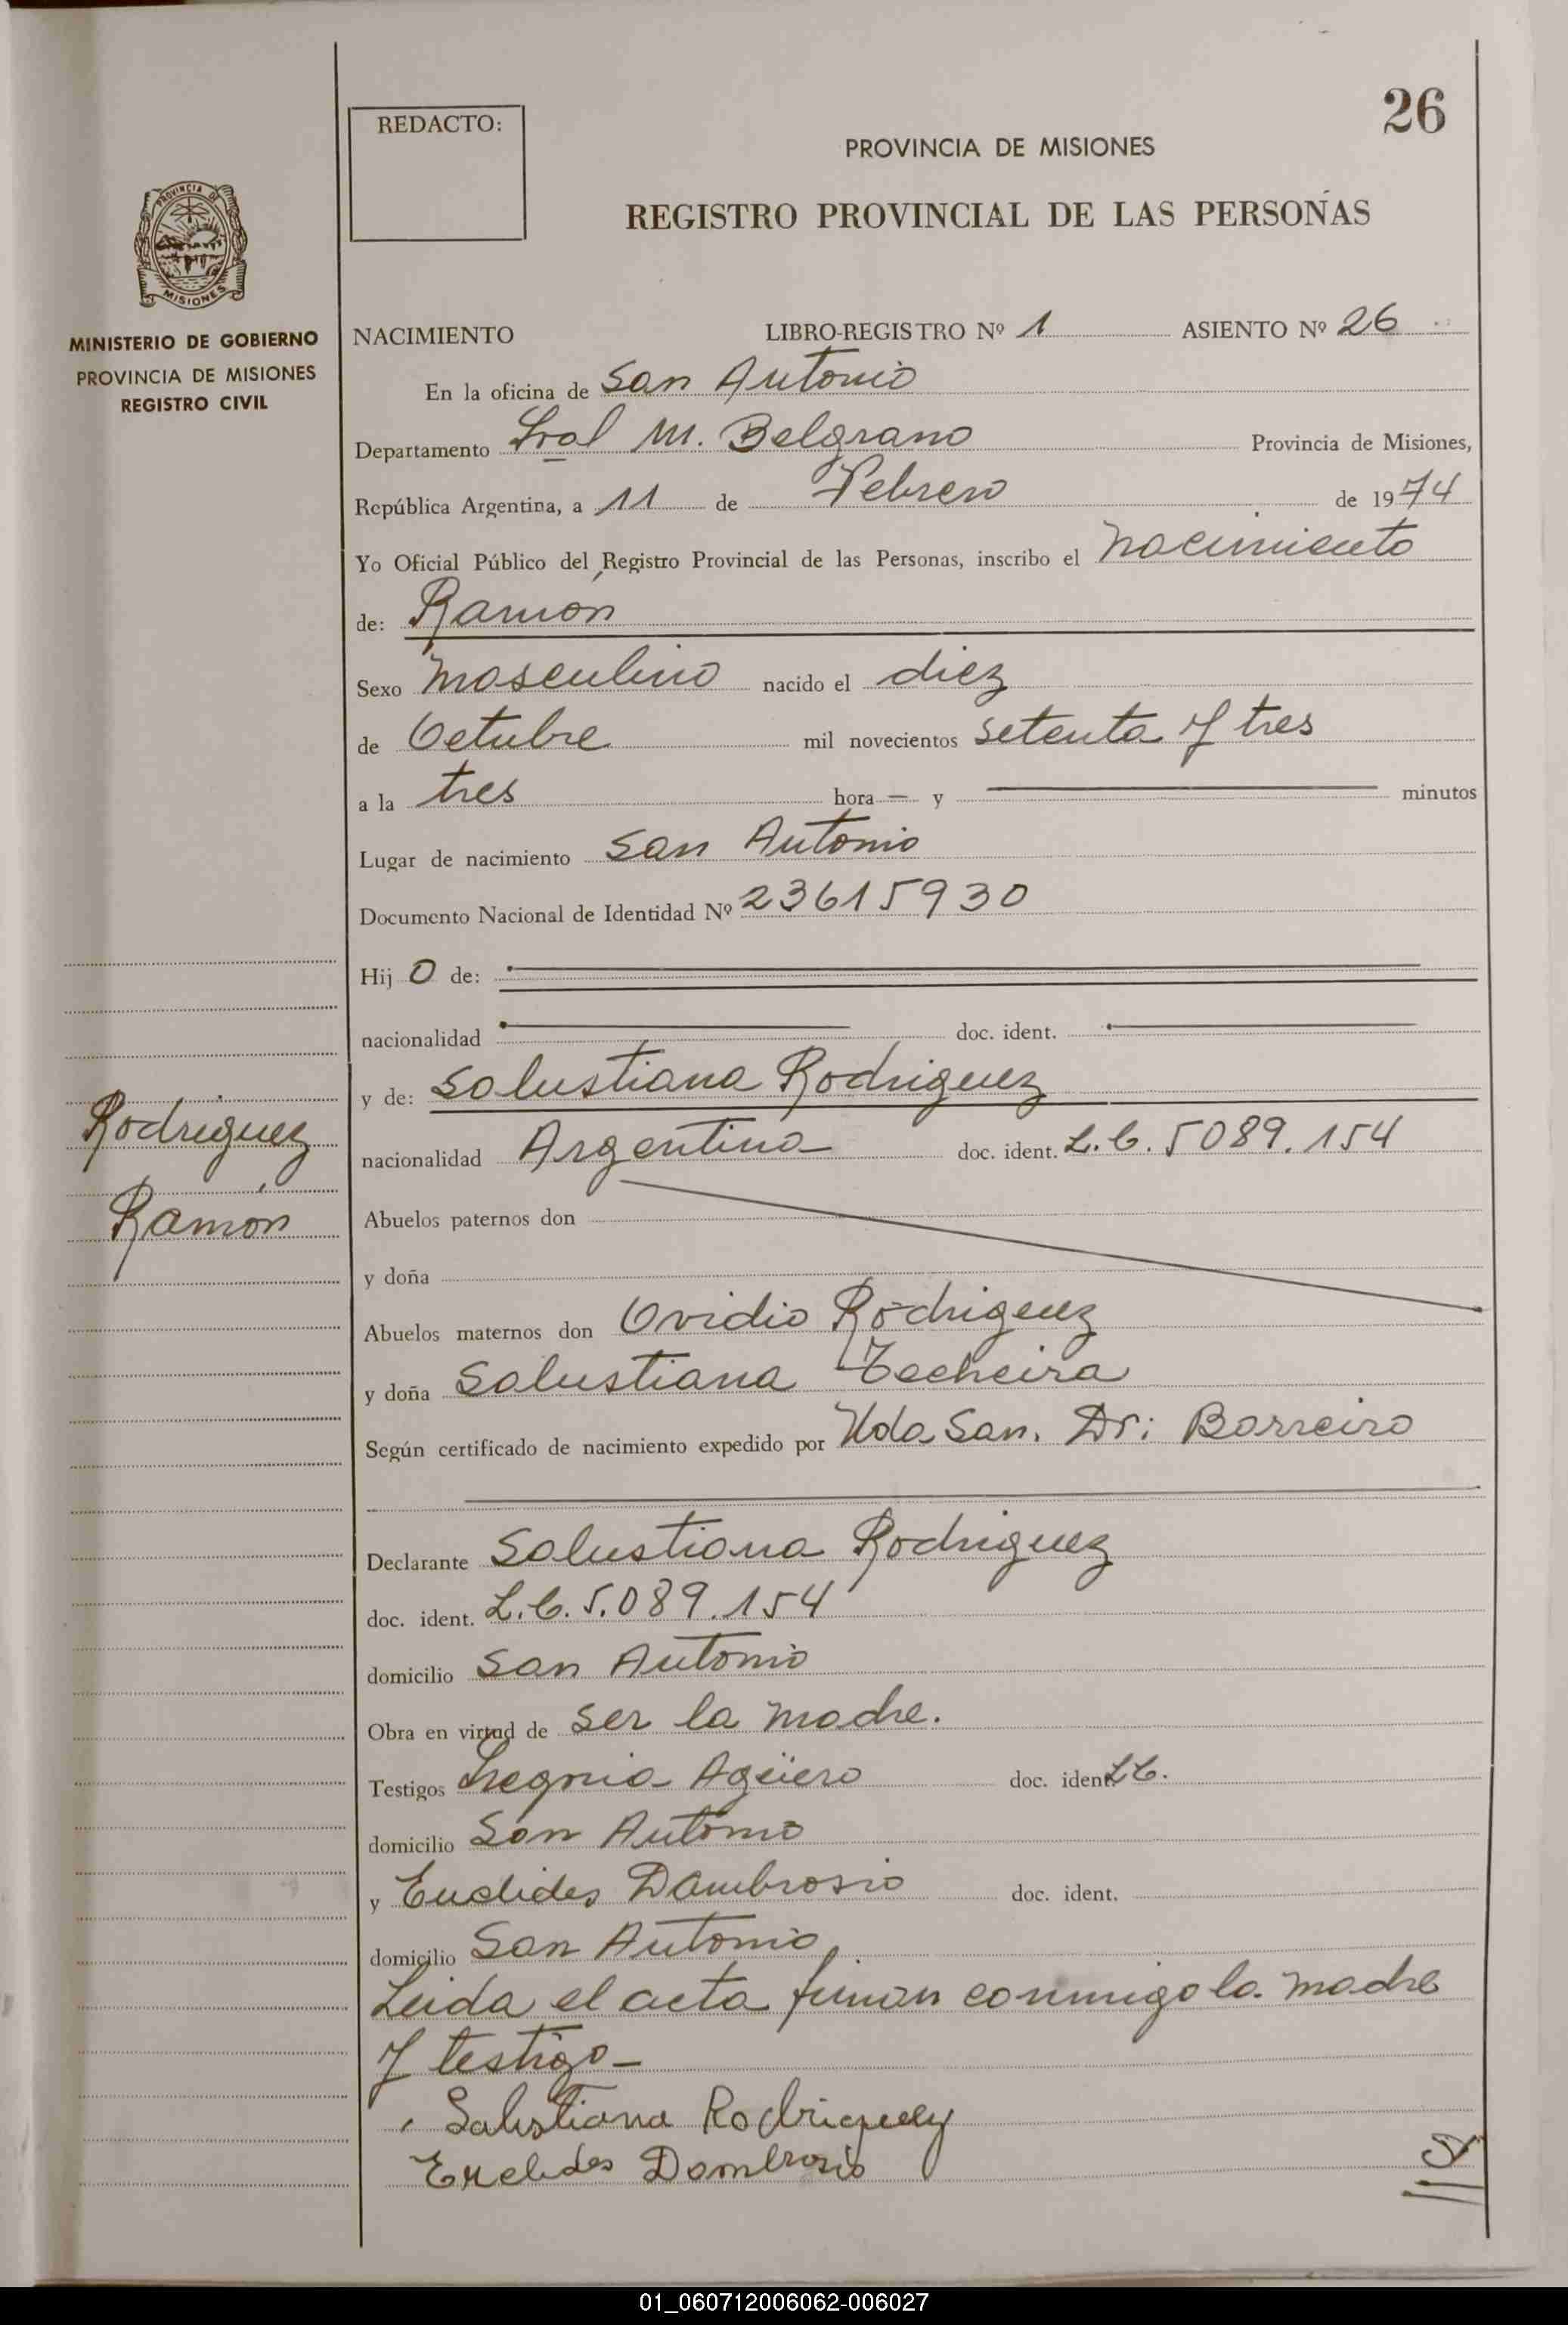 26
REDACTO:
PROVINCIA DE MISIONES
REGISTRO PROVINCIAL DE LAS PERSONAS
PROVINCIA DE
MISIONES
MINISTERIO DE GOBIERNO
PROVINCIA DE MISIONES
REGISTRO CIVIL
NACIMIENTO LIBRO-REGISTRO Nº 1 ASIENTO Nº 26
En la oficina de San Antonio
Departamento Gral M. Belgrano Provincia de Misiones,
República Argentina, a 11 de Febrero de 1974
Yo Oficial Público del Registro Provincial de las Personas, inscribo el nacimiento
de: Ramón
Sexo masculino nacido el diez
de Octubre mil novecientos setenta y tres
a la tres hora — y minutos
Lugar de nacimiento San Antonio
Documento Nacional de Identidad Nº 23615930
Hij o de:
nacionalidad doc. ident.
y de: Salustiana Rodriguez
nacionalidad Argentina doc. ident. L.C. 5089.154
Rodriguez
Ramón
Abuelos paternos don
y doña
Abuelos maternos don Ovidio Rodriguez
y doña Salustiana Techeira
Según certificado de nacimiento expedido por San. Dr: Barreiro
Declarante Salustiana Rodriguez
doc. ident. L.C. 5.089.154
domicilio San Antonio
Obra en virtud de ser la madre.
Testigos Agüero doc. ident. LC.
domicilio San Antonio
y Euclides Dambrosio doc. ident.
domicilio San Antonio
Leida el acta firman conmigo la madre
y testigo-
Salustiana Rodriguez
Euclides Dombrosio
01_060712006062-006027